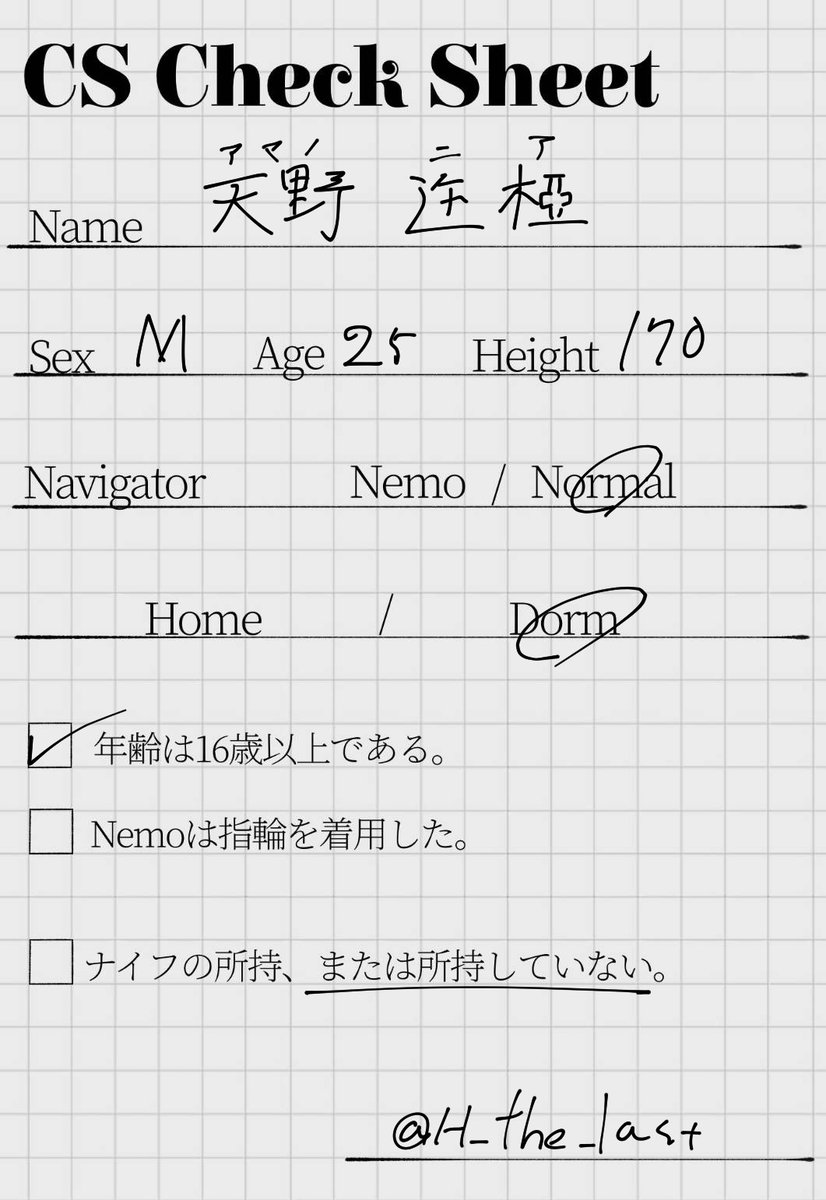 CS Check Sheet
アマノ ニ ア
Name 天野 椏
Sex M Age 25 Height 170
Navigator Nemo / Normal
Home / Dorm
年齢は16歳以上である。
Nemoは指輪を着用した。
ナイフの所持、または所持していない。
@H_the_last